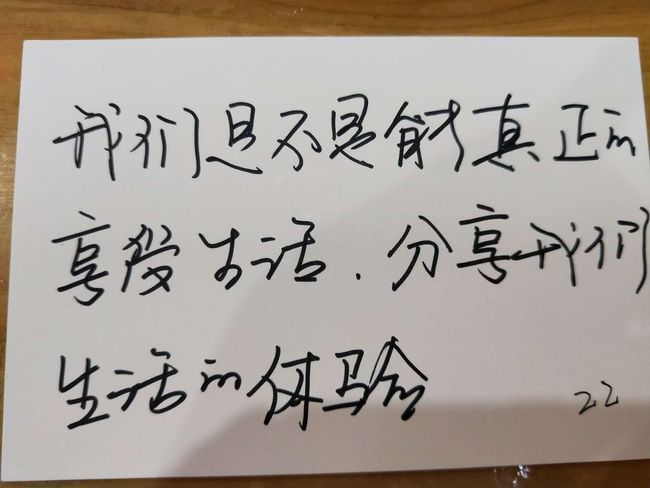 我们是不是能真正的
享受生活.分享我们
生活的体验
22